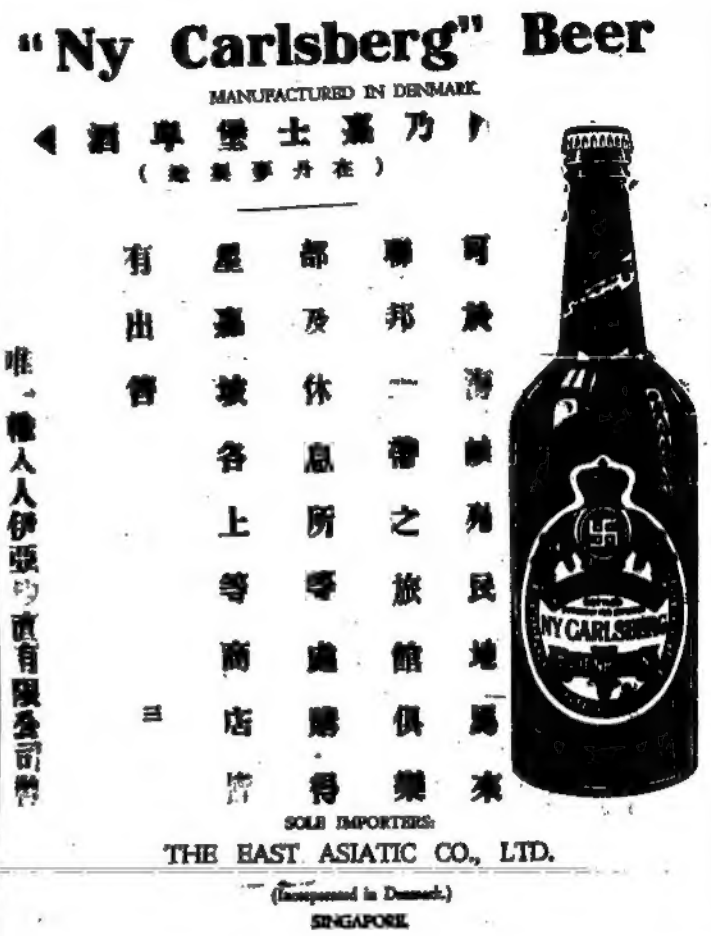 “Ny Carlsberg” Beer
MANUFACTURED IN DENMARK.
乃嘉士堡啤酒
(在丹麥製
可於海峽殖民地馬來
聯邦一帶之旅館俱樂
都及休息所等處購得
星嘉坡各上等商店
有出售
唯一
人伊亞
直有限公司
NY CARLSBERG
SOLE IMPORTERS:
THE EAST ASIATIC CO., LTD.
(Incorporated in Denmark.)
SINGAPORE.